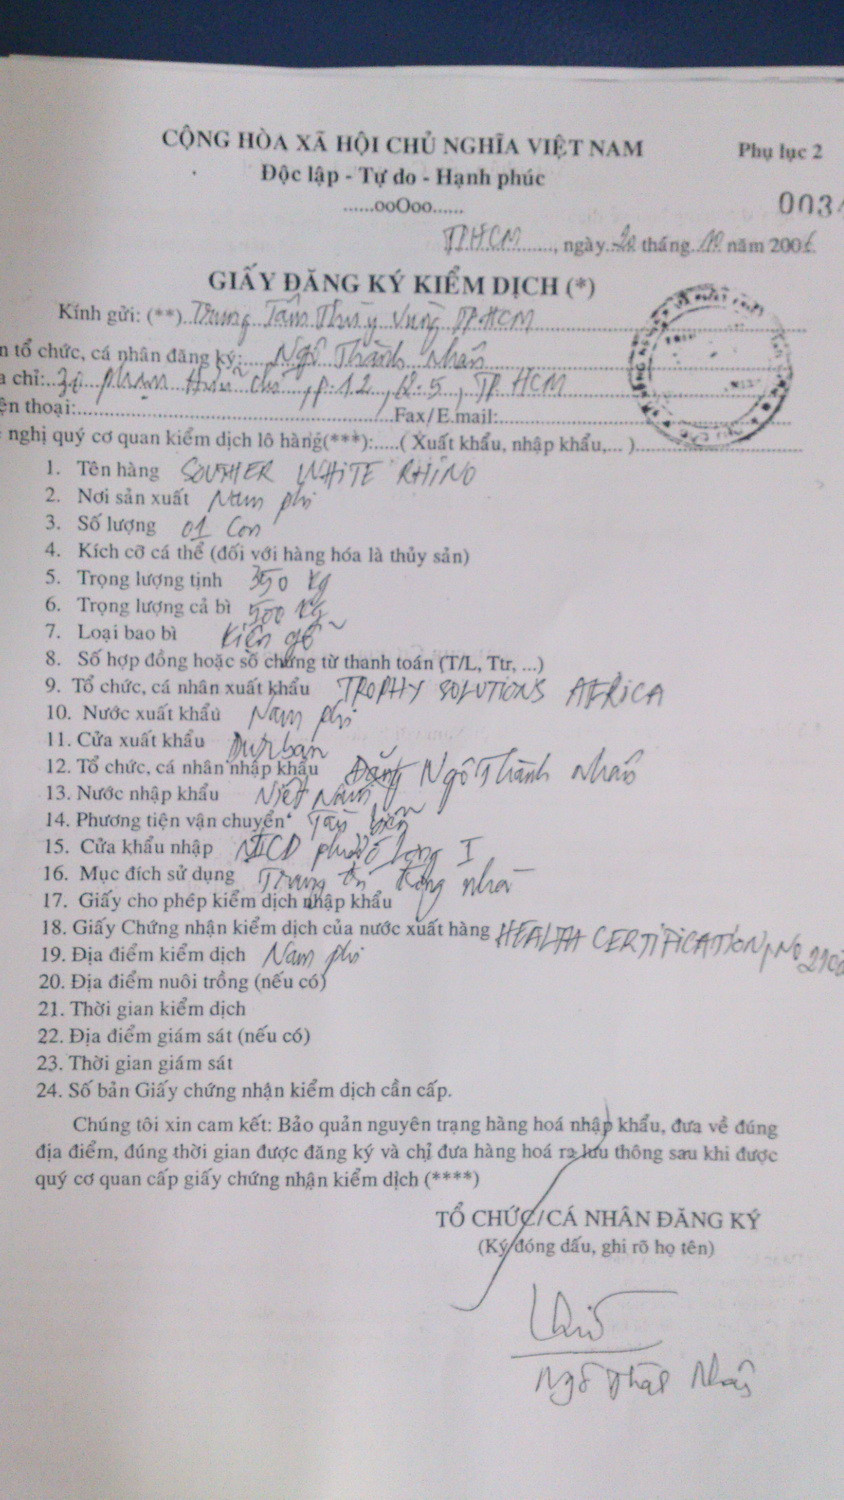 CỘNG HÒA XÃ HỘI CHỦ NGHĨA VIỆT NAM Phụ lục 2
Độc lập - Tự do - Hạnh phúc
......ooOoo...... 003
TP.HCM......, ngày 20 tháng 10 năm 2006
GIẤY ĐĂNG KÝ KIỂM DỊCH (*)
Kính gửi: (**) Trung Tâm Thú y Vùng TP.HCM
n tổ chức, cá nhân đăng ký: Ngô Thành Nhân
a chỉ: Phạm Hữu Chí, P.12, Q.5, TP HCM
ện thoại:..........Fax/E.mail:..........
nghị quý cơ quan kiểm dịch lô hàng(***):.....( Xuất khẩu, nhập khẩu,... )..........
1. Tên hàng SOUTHER WHITE RHINO
2. Nơi sản xuất Nam phi
3. Số lượng 01 Con
4. Kích cỡ cá thể (đối với hàng hóa là thủy sản)
5. Trọng lượng tịnh 350 kg
6. Trọng lượng cả bì 500 kg
7. Loại bao bì Kiện gỗ
8. Số hợp đồng hoặc số chứng từ thanh toán (T/L, Ttr, ...)
9. Tổ chức, cá nhân xuất khẩu TROPHY SOLUTIONS AFRICA
10. Nước xuất khẩu Nam phi
11. Cửa xuất khẩu Durban
12. Tổ chức, cá nhân nhập khẩu Ngô Thành Nhân
13. Nước nhập khẩu Việt Nam
14. Phương tiện vận chuyển Tàu biển
15. Cửa khẩu nhập ICD phước long I
16. Mục đích sử dụng Trưng trong nhà
17. Giấy cho phép kiểm dịch nhập khẩu
18. Giấy Chứng nhận kiểm dịch của nước xuất hàng HEALTH CERTIFICATION, NO
19. Địa điểm kiểm dịch Nam phi
20. Địa điểm nuôi trồng (nếu có)
21. Thời gian kiểm dịch
22. Địa điểm giám sát (nếu có)
23. Thời gian giám sát
24. Số bản Giấy chứng nhận kiểm dịch cần cấp.
Chúng tôi xin cam kết: Bảo quản nguyên trạng hàng hoá nhập khẩu, đưa về đúng
địa điểm, đúng thời gian được đăng ký và chỉ đưa hàng hoá ra lưu thông sau khi được
quý cơ quan cấp giấy chứng nhận kiểm dịch (****)
TỔ CHỨC/CÁ NHÂN ĐĂNG KÝ
(Ký đóng dấu, ghi rõ họ tên)
Ngô Thành Nhân